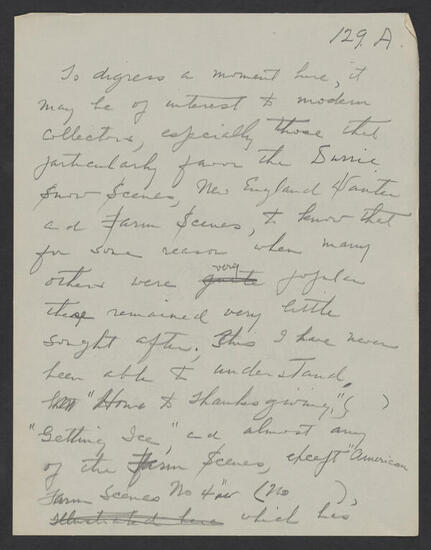 129 A
To digress a moment here, it
may be of interest to modern
collectors, especially those that
particularly favor the Durrie
Snow Scenes, New England Winter
and Farm Scenes, to know that
for some reason when many
very
others were quite popular
these remained very little
sought after. This I have never
been able to understand.
"Home to Thanksgiving," ( )
"Getting Ice," and almost any
of the Farm Scenes, except "American
Farm Scenes No 4" (No ),
Illustrated here which has